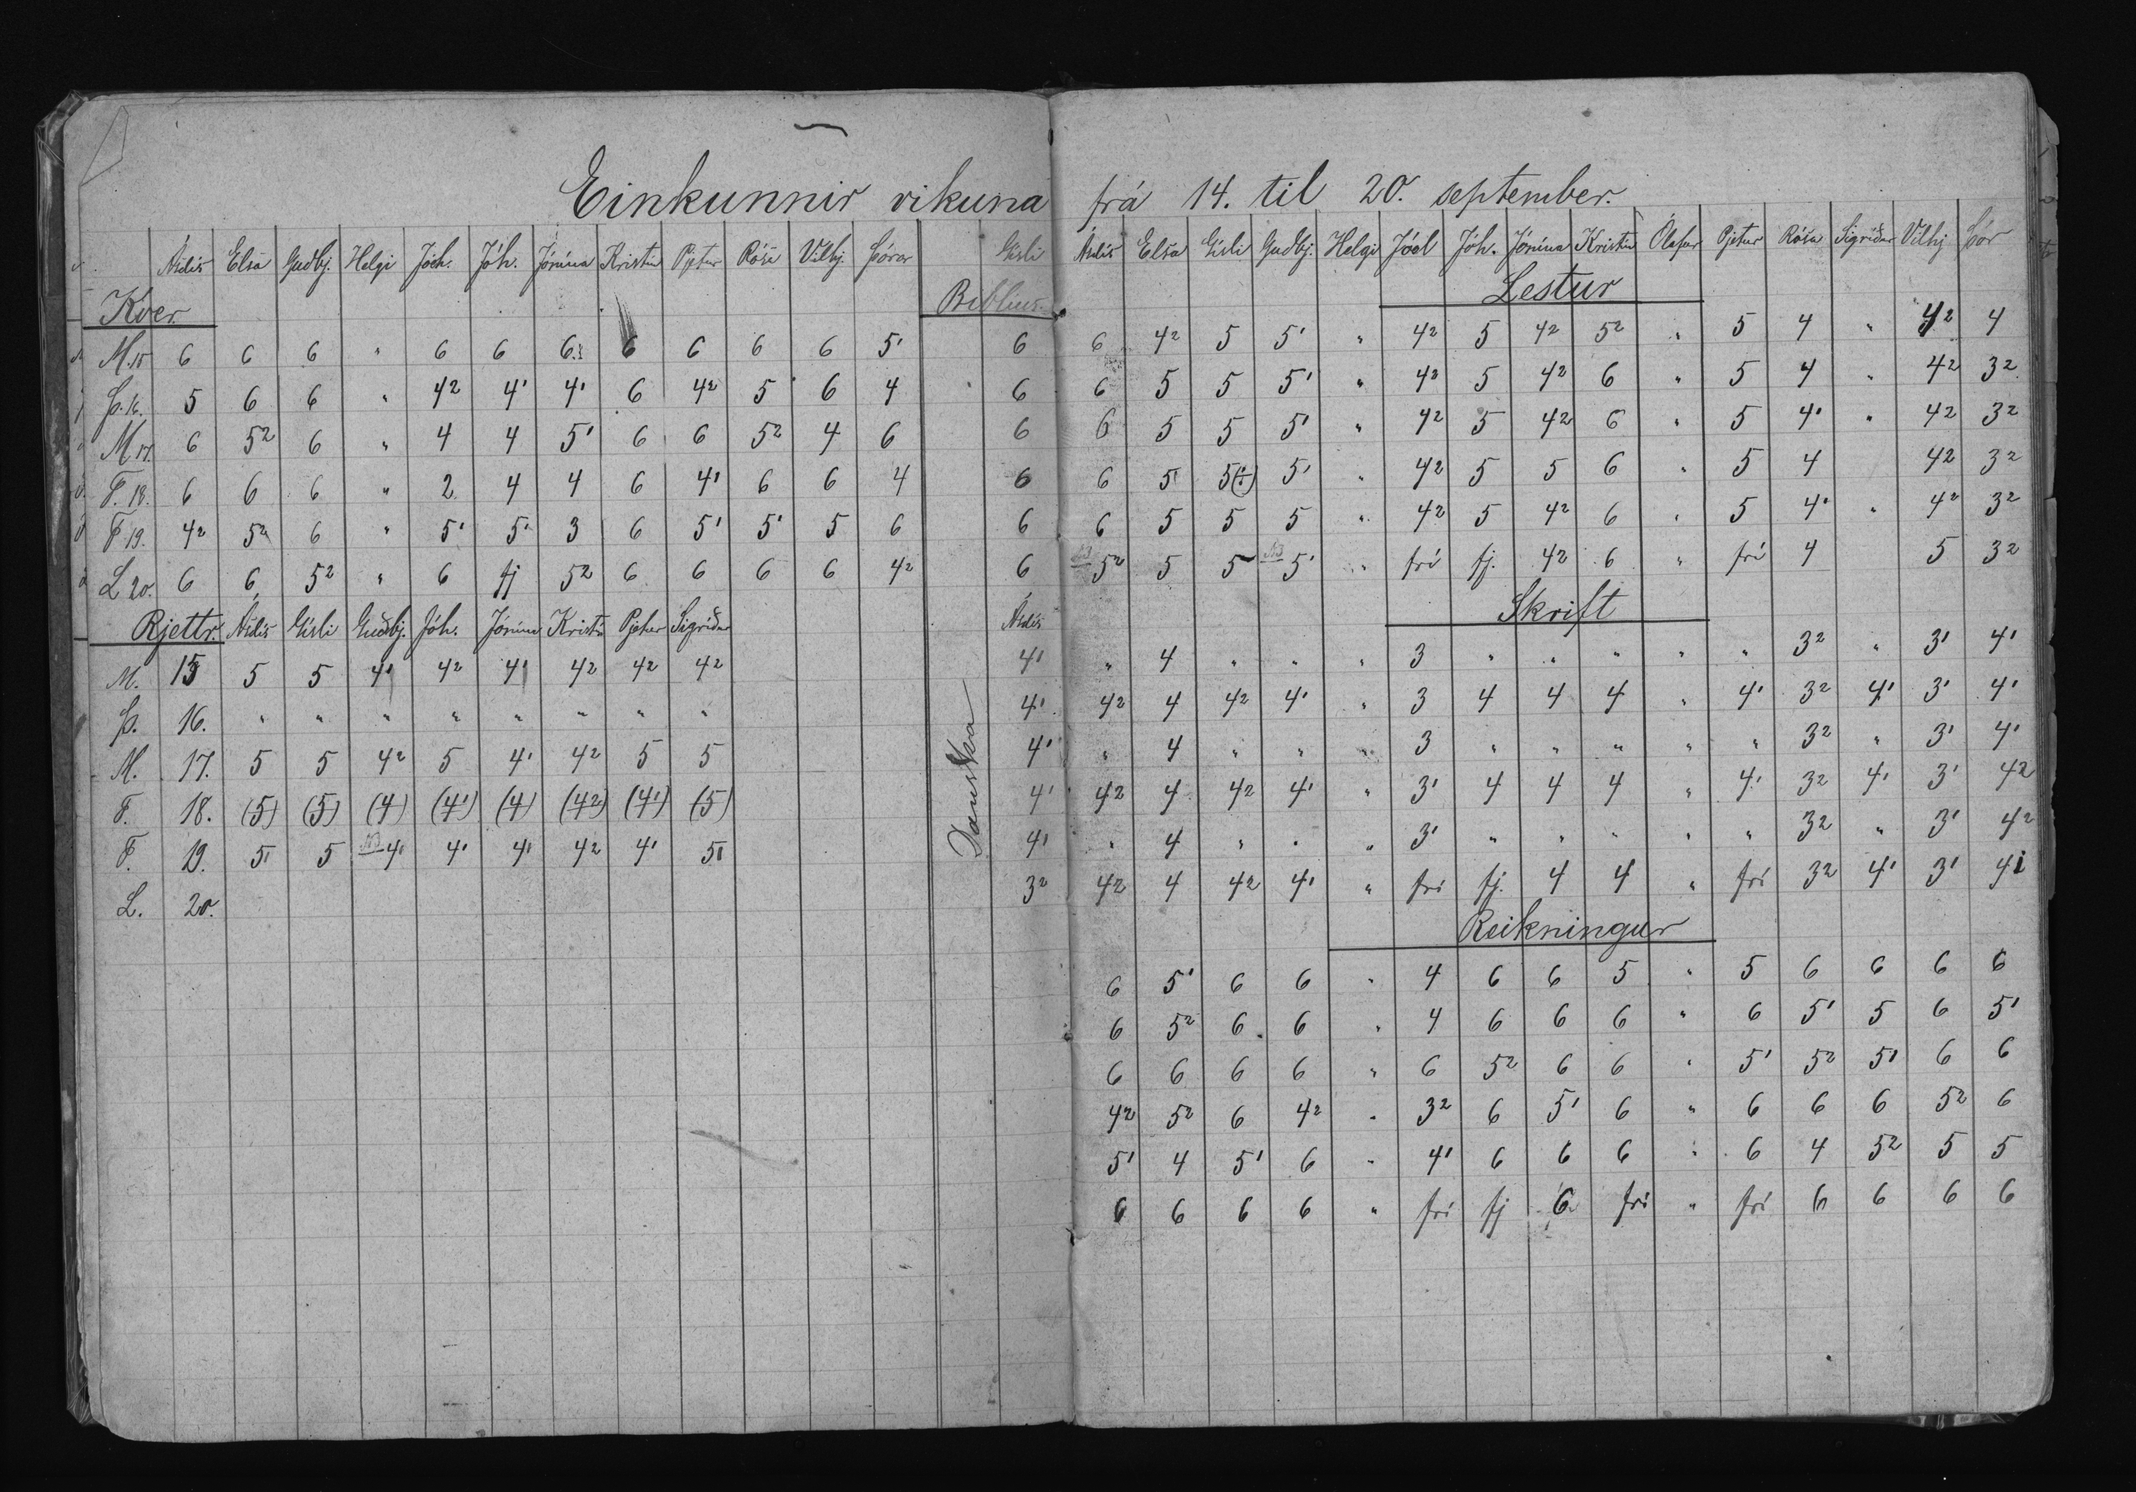 Einkunnir vikuna frá 14. til 20. september.
Ásdís Elsa Guðbj. Helgi Jóh. Jóh. Jónína Kristín Pjetur Rósa Vilhj. Þórar Gísli
Kver. Biblíus.
M. 15 6 6 6 " 6 6 6 6 6 6 6 5¹ 6
Þ. 16. 5 6 6 " 4² 4¹ 4¹ 6 4² 5 6 4 6
M 17. 6 5² 6 " 4 4 5¹ 6 6 5² 4 6 6
F. 18. 6 6 6 " 2 4 4 6 4¹ 6 6 4 6
F 19. 4² 5² 6 " 5¹ 5¹ 3 6 5¹ 5¹ 5 6 6
L 20. 6 6 5² " 6 fj 5² 6 6 6 6 4² 6
Rjettr. Ásdís Gísli Guðbj. Jóh. Jónína Kristín Pjetur Sigríður Ásdís
Danska
M. 15 5 5 4¹ 4² 4¹ 4² 4² 4² 4¹
Þ. 16. " " " " " " " " 4¹
M. 17. 5 5 4² 5 4¹ 4² 5 5 4¹
F. 18. (5) (5) (4) (4¹) (4) (4²) (4¹) (5) 4¹
F. 19. 5¹ 5 4¹ 4¹ 4¹ 4² 4¹ 5¹ 4¹
L. 20. 3²
Ásdís Elsa Gísli Guðbj. Helgi Jóel Jóh. Jónína Kristín Ólafur Pjetur Rósa Sigríður Vilhj Þór
Lestur
6 4² 5 5¹ " 4² 5 4² 5² " 5 4 " 4² 4
6 5 5 5¹ " 4² 5 4² 6 " 5 4 " 4² 3²
6 5 5 5¹ " 4² 5 4² 6 " 5 4¹ " 4² 3²
6 5¹ 5(÷) 5¹ " 4² 5 5 6 " 5 4 4² 3²
6 5 5 5 " 4² 5 4² 6 " 5 4¹ " 4² 3²
5² 5 5 5¹ " frí fj. 4² 6 " frí 4 5 3²
Skrift
" 4 " " " 3 " " " " " 3² " 3¹ 4¹
4² 4 4² 4¹ " 3 4 4 4 " 4¹ 3² 4¹ 3¹ 4¹
" 4 " " " 3 " " " " " 3² " 3¹ 4¹
4² 4 4² 4¹ " 3¹ 4 4 4 " 4¹ 3² 4¹ 3¹ 4²
" 4 " " " 3¹ " " " " " 3² " 3¹ 4²
4² 4 4² 4¹ " frí fj. 4 4 " frí 3² 4¹ 3¹ 4¹
Reikningur
6 5¹ 6 6 " 4 6 6 5 " 5 6 6 6 6
6 5² 6 6 " 4 6 6 6 " 6 5¹ 5 6 5¹
6 6 6 6 " 6 5² 6 6 " 5¹ 5² 5¹ 6 6
4² 5² 6 4² " 3² 6 5¹ 6 " 6 6 6 5² 6
5¹ 4 5¹ 6 " 4¹ 6 6 6 " 6 4 5² 5 5
6 6 6 6 " frí fj 6 frí " frí 6 6 6 6